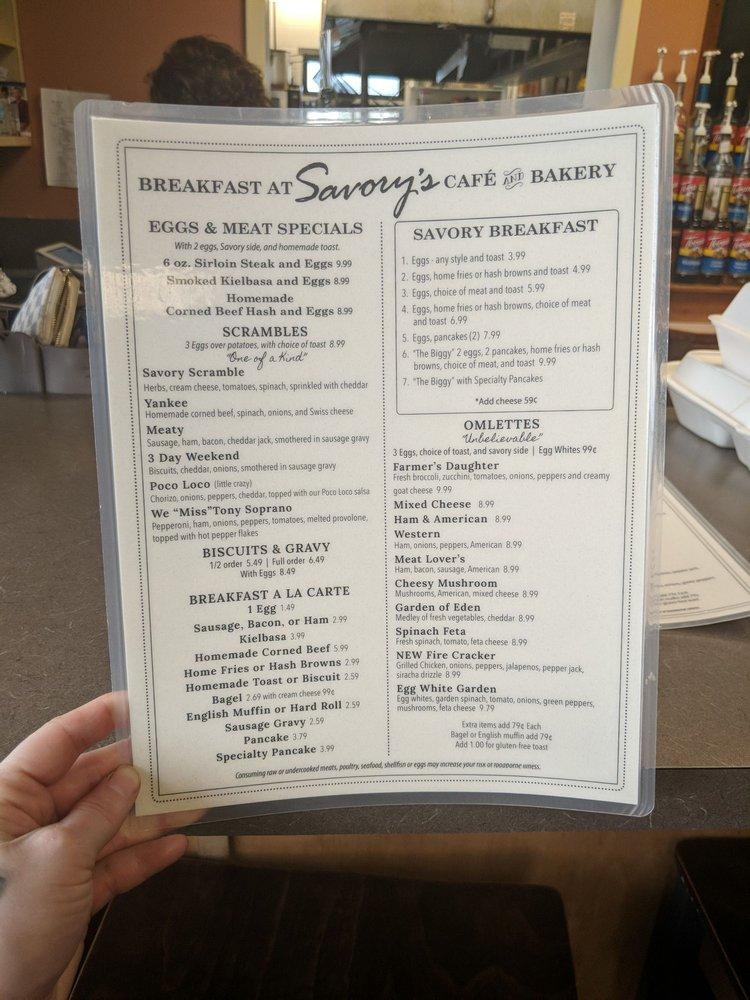 BREAKFAST AT Savory's CAFÉ AND BAKERY
EGGS & MEAT SPECIALS
With 2 eggs, Savory side, and homemade toast.
6 oz. Sirloin Steak and Eggs 9.99
Smoked Kielbasa and Eggs 8.99
Homemade
Corned Beef Hash and Eggs 8.99
SCRAMBLES
3 Eggs over potatoes, with choice of toast 8.99
"One of a Kind"
Savory Scramble
Herbs, cream cheese, tomatoes, spinach, sprinkled with cheddar
Yankee
Homemade corned beef, spinach, onions, and Swiss cheese
Meaty
Sausage, ham, bacon, cheddar jack, smothered in sausage gravy
3 Day Weekend
Biscuits, cheddar, onions, smothered in sausage gravy
Poco Loco (little crazy)
Chorizo, onions, peppers, cheddar, topped with our Poco Loco salsa
We "Miss"Tony Soprano
Pepperoni, ham, onions, peppers, tomatoes, melted provolone,
topped with hot pepper flakes
BISCUITS & GRAVY
1/2 order 5.49 | Full order 6.49
With Eggs 8.49
BREAKFAST A LA CARTE
1 Egg 1.49
Sausage, Bacon, or Ham 2.99
Kielbasa 3.99
Homemade Corned Beef 5.99
Home Fries or Hash Browns 2.99
Homemade Toast or Biscuit 2.59
Bagel 2.69 with cream cheese 99¢
English Muffin or Hard Roll 2.59
Sausage Gravy 2.59
Pancake 3.79
Specialty Pancake 3.99
SAVORY BREAKFAST
1. Eggs - any style and toast 3.99
2. Eggs, home fries or hash browns and toast 4.99
3. Eggs, choice of meat and toast 5.99
4. Eggs, home fries or hash browns, choice of meat
and toast 6.99
5. Eggs, pancakes (2) 7.99
6. "The Biggy" 2 eggs, 2 pancakes, home fries or hash
browns, choice of meat, and toast 9.99
7. "The Biggy" with Specialty Pancakes
*Add cheese 59¢
OMLETTES
"Unbelievable"
3 Eggs, choice of toast, and savory side | Egg Whites 99¢
Farmer's Daughter
Fresh broccoli, zucchini, tomatoes, onions, peppers and creamy
goat cheese 9.99
Mixed Cheese 8.99
Ham & American 8.99
Western
Ham, onions, peppers, American 8.99
Meat Lover's
Ham, bacon, sausage, American 8.99
Cheesy Mushroom
Mushrooms, American, mixed cheese 8.99
Garden of Eden
Medley of fresh vegetables, cheddar 8.99
Spinach Feta
Fresh spinach, tomato, feta cheese 8.99
NEW Fire Cracker
Grilled Chicken, onions, peppers, jalapenos, pepper jack,
siracha drizzle 8.99
Egg White Garden
Egg whites, garden spinach, tomato, onions, green peppers,
mushrooms, feta cheese 9.79
Extra items add 79¢ Each
Bagel or English muffin add 79¢
Add 1.00 for gluten-free toast
Consuming raw or undercooked meats, poultry, seafood, shellfish or eggs may increase your